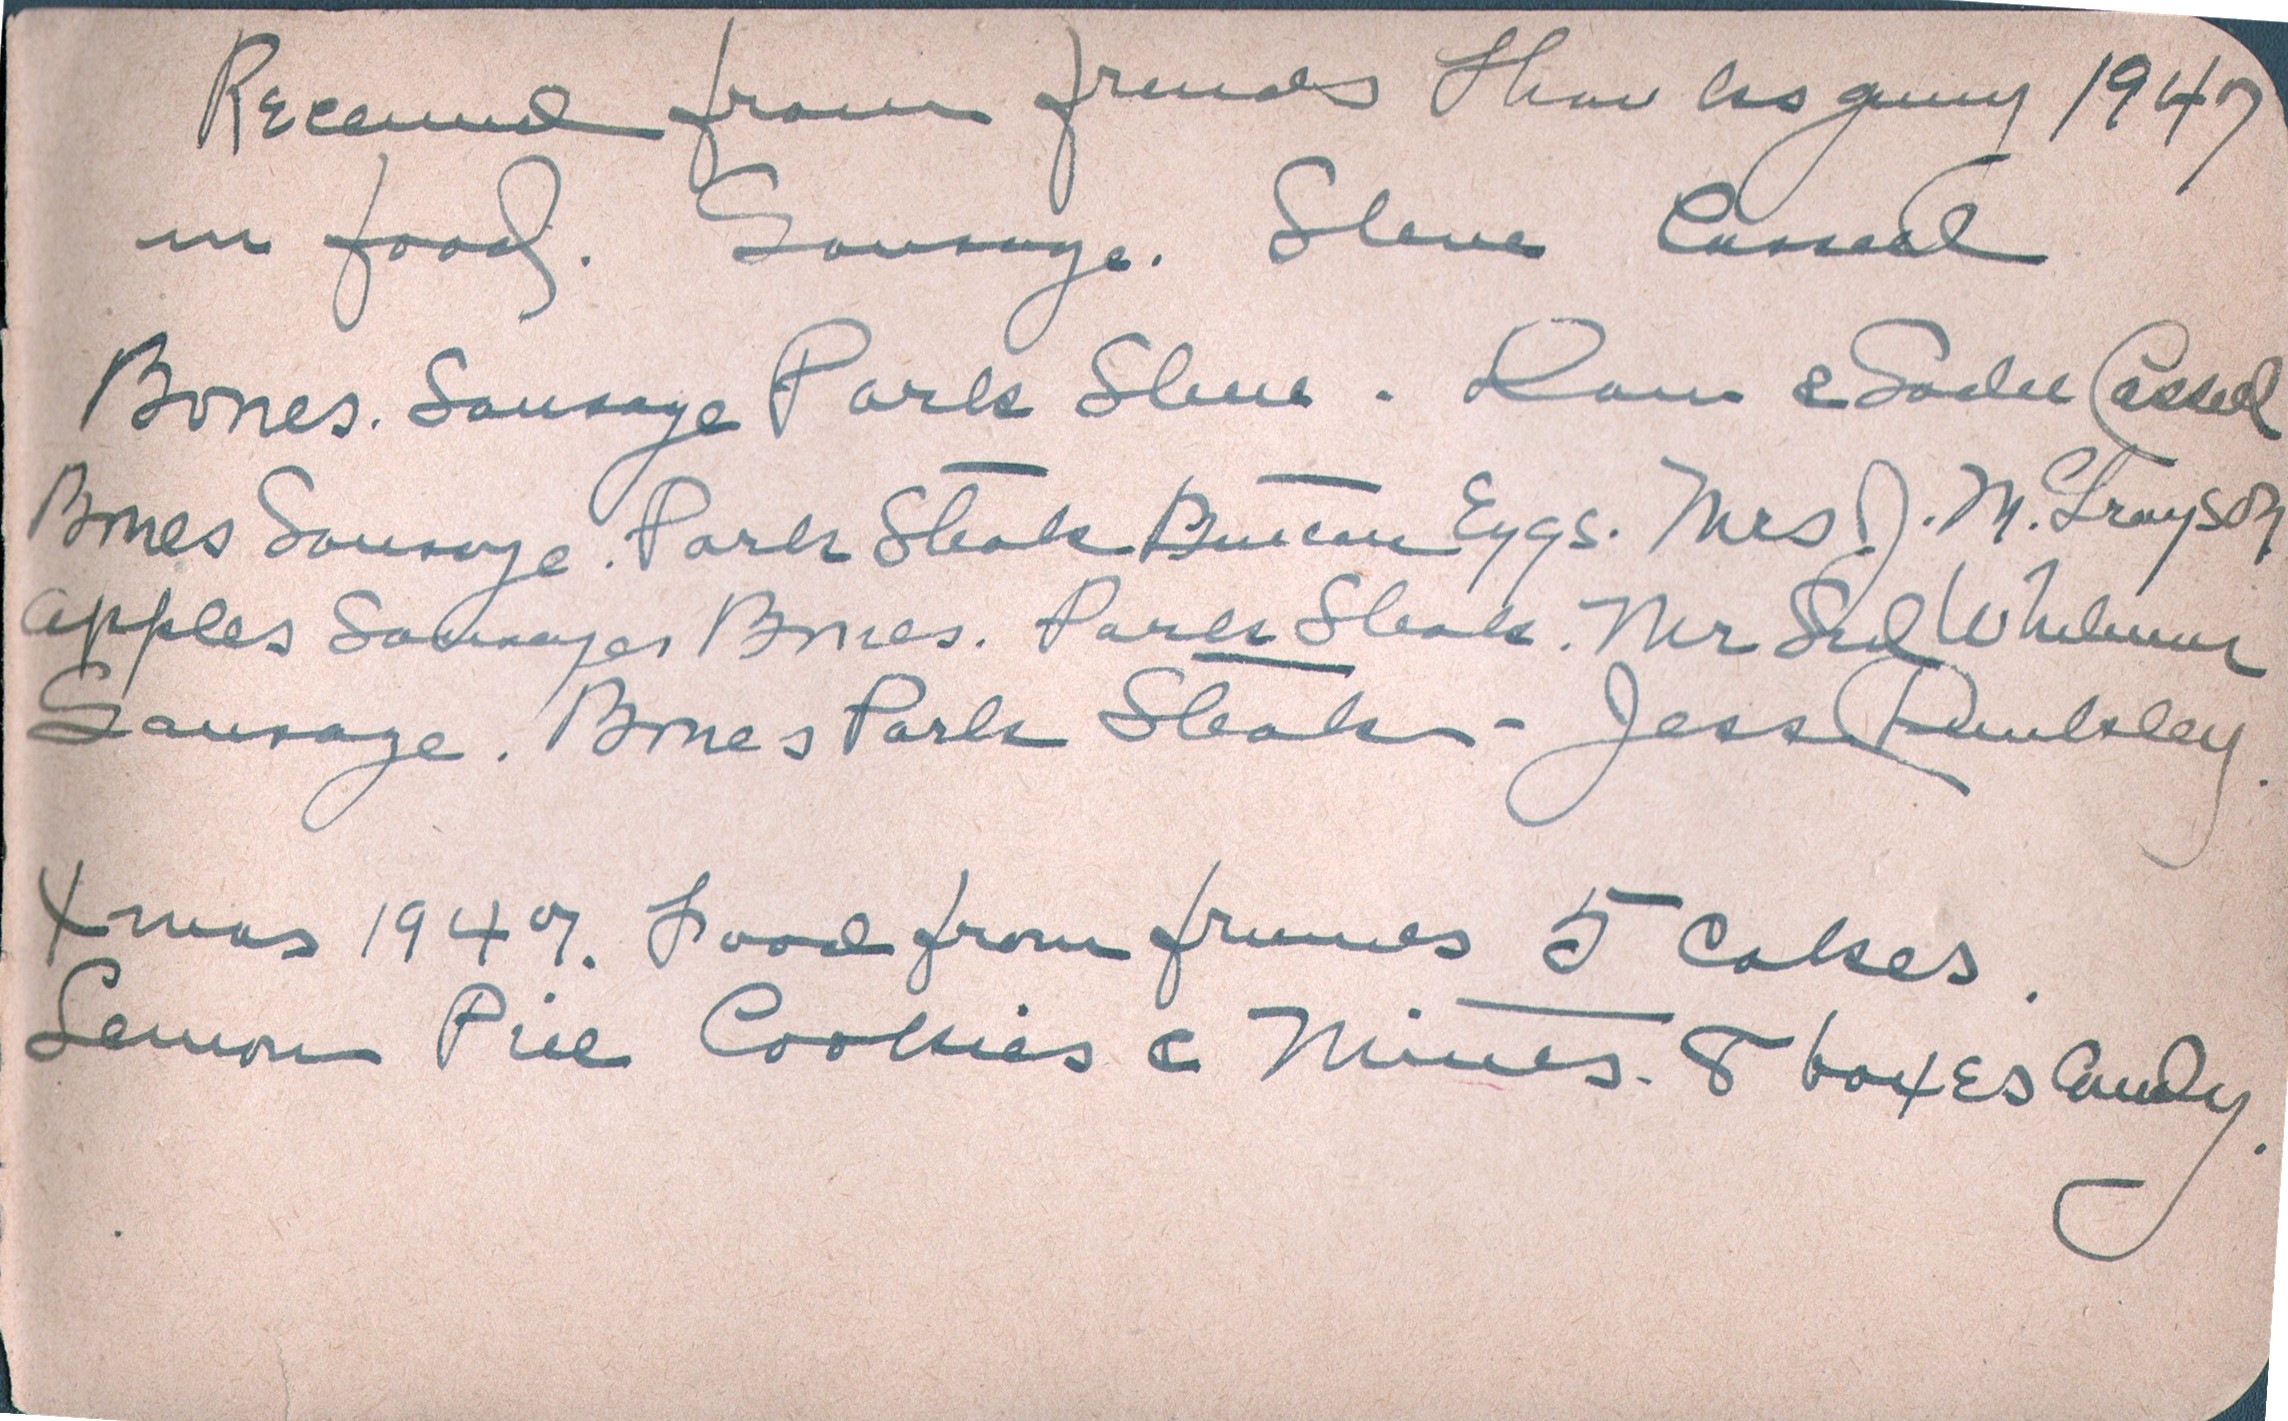 Received from friends Thanksgiving 1947
in food. Sausage. Steve Cassell
Bones. Sausage Pork Steve. Dow & Sadie Cassell
Bones Sausage. Pork Steak Butter Eggs. Mrs J. M. Grayson
apples Sausages Bones. Pork Steak. Mr Sid Whitmer
Sausage. Bones Pork Steak - Jess
Xmas 1947. Food from friends 5 Cakes.
Lemon Pie Cookies & Mines. 8 boxes Candy.